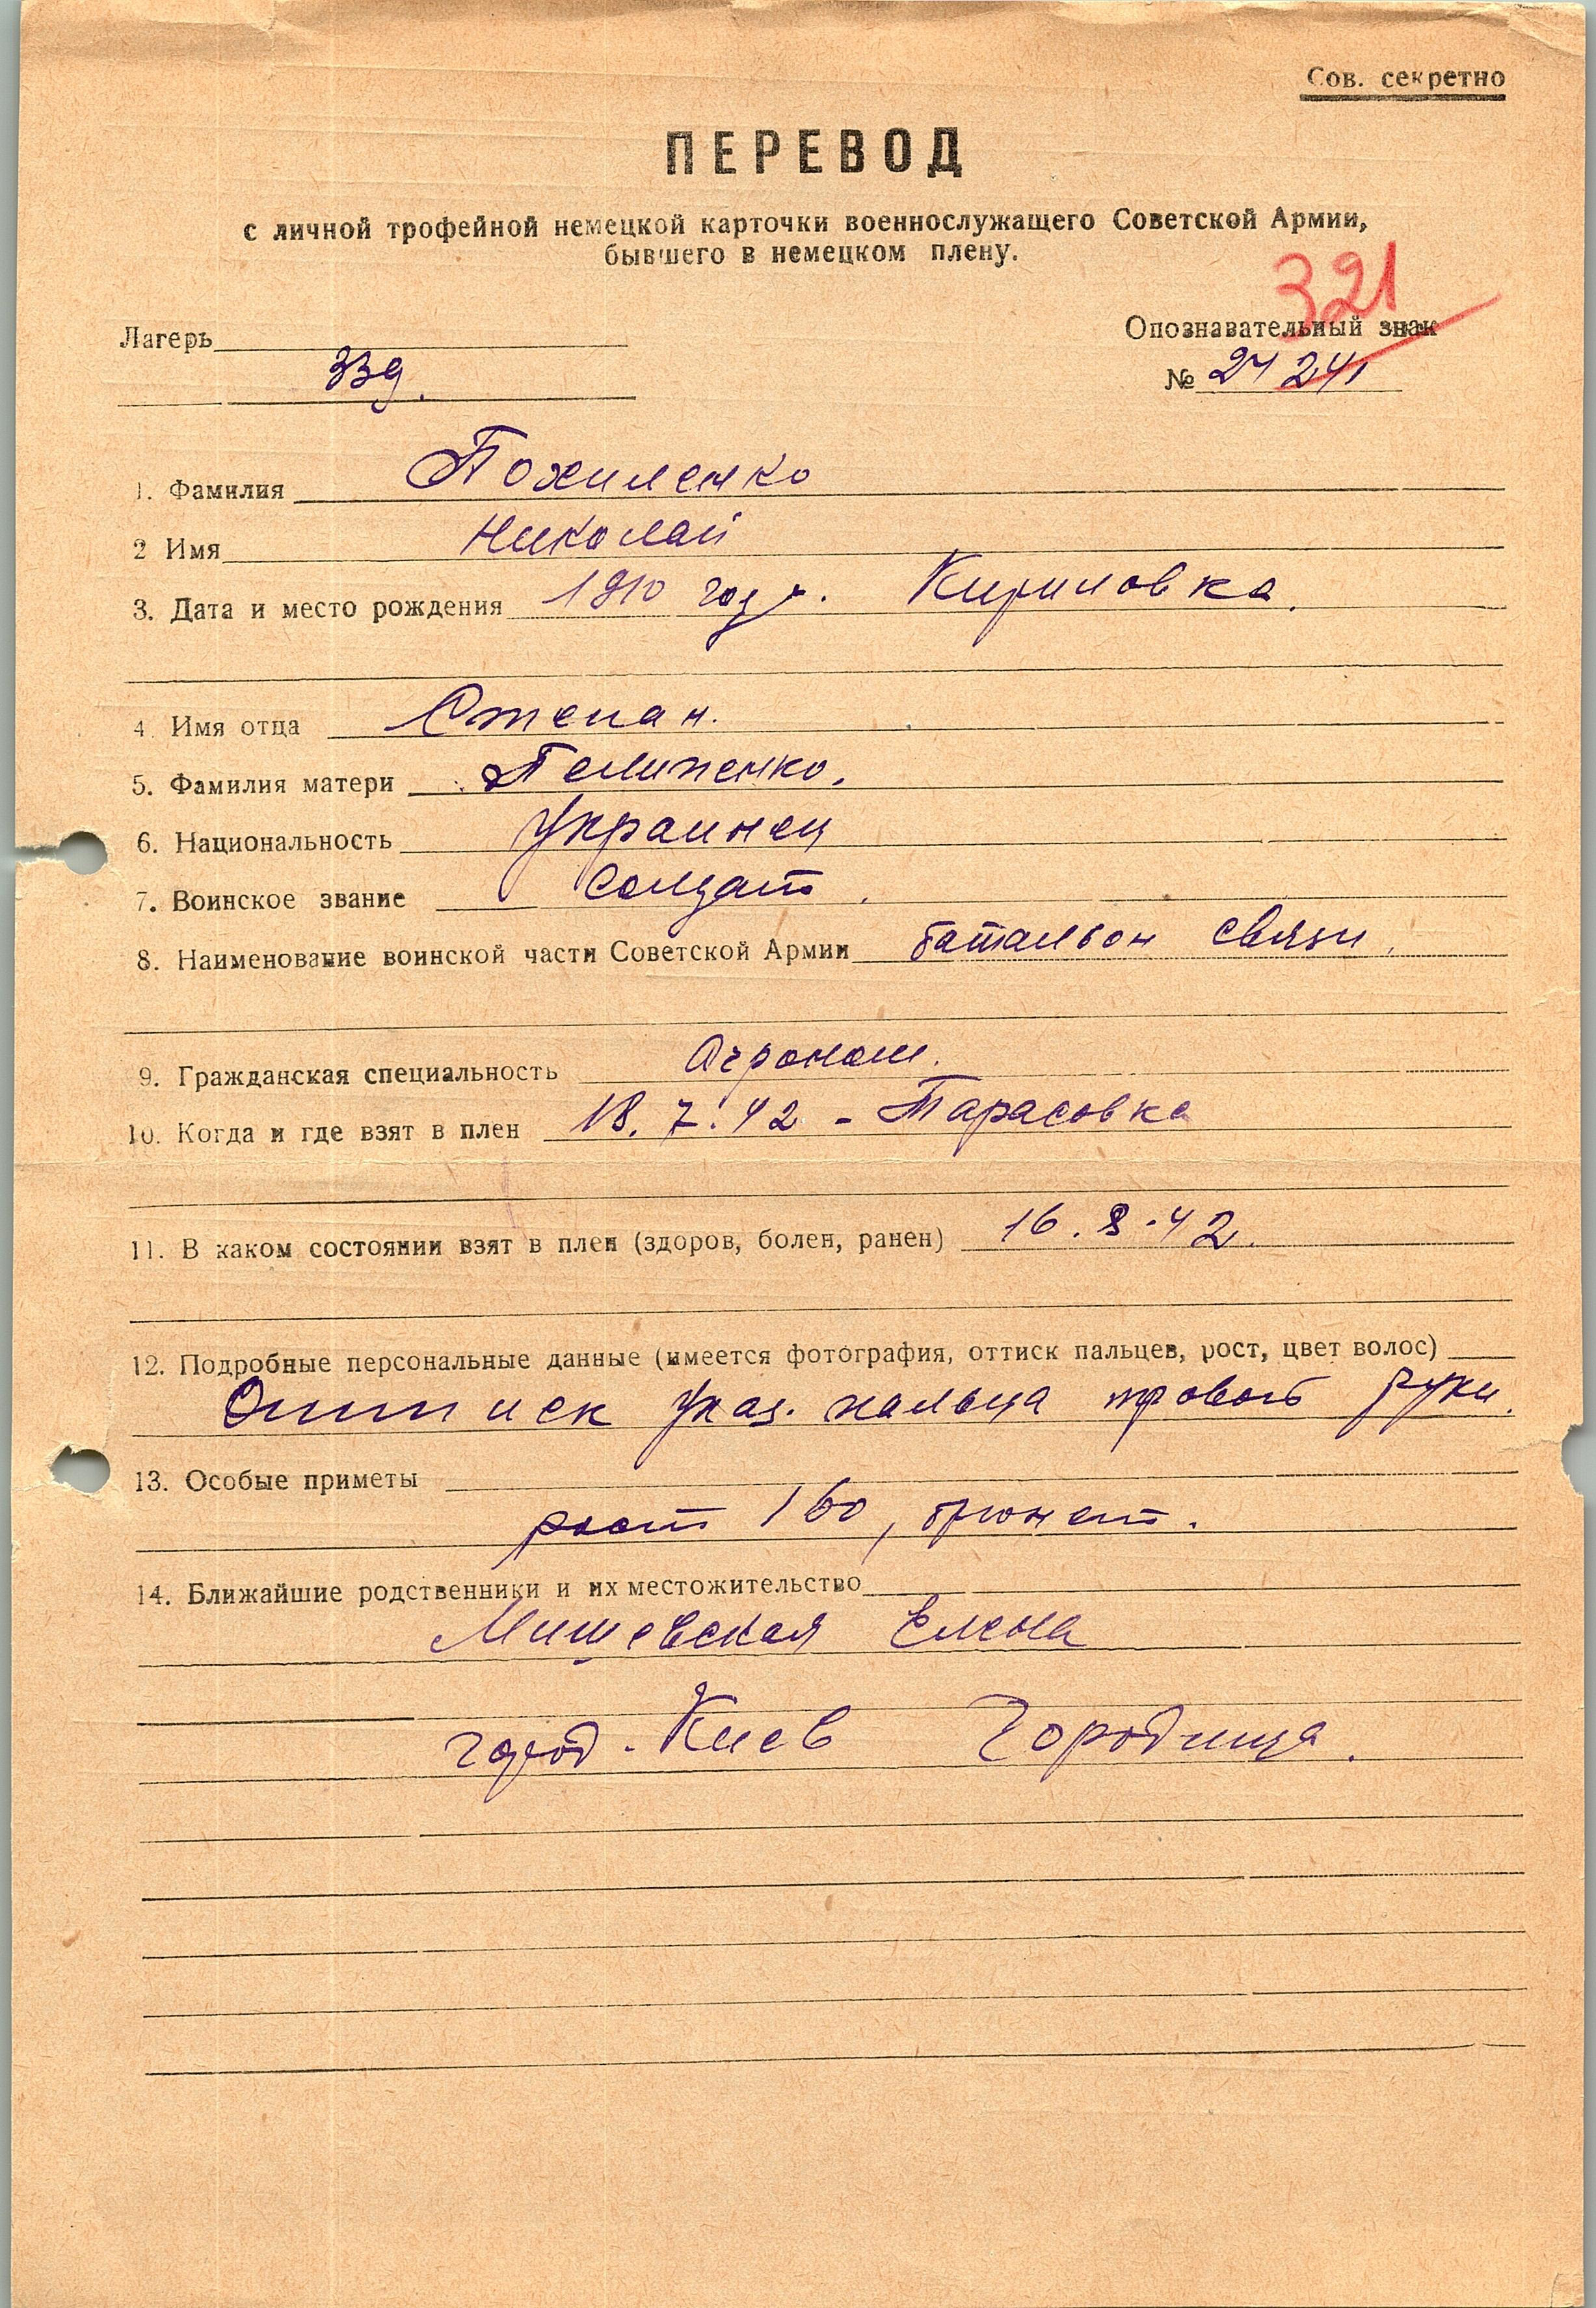 Сов. секретно
ПЕРЕВОД
с личной трофейной немецкой карточки военнослужащего Советской Армии,
бывшего в немецком плену.
321
Лагерь
Опознавательный знак
339.
№ 24 241
1. Фамилия Похиленко
2 Имя Николай
3. Дата и место рождения 1910 год. Кириловка.
4 Имя отца Степан.
5. Фамилия матери
6. Национальность Украинец
7. Воинское звание Солдат.
8. Наименование воинской части Советской Армии батальон связи.
9. Гражданская специальность Агроном.
10. Когда и где взят в плен 18.7.42 - Тарасовка
11. В каком состоянии взят в плен (здоров, болен, ранен) 16.8.42.
12. Подробные персональные данные (имеется фотография, оттиск пальцев, рост, цвет волос)
Оттиск указ. пальца правой руки.
13. Особые приметы
рост 160, брюнет.
14. Ближайшие родственники и их местожительство
Мишевская Елена
город. Киев Городища.